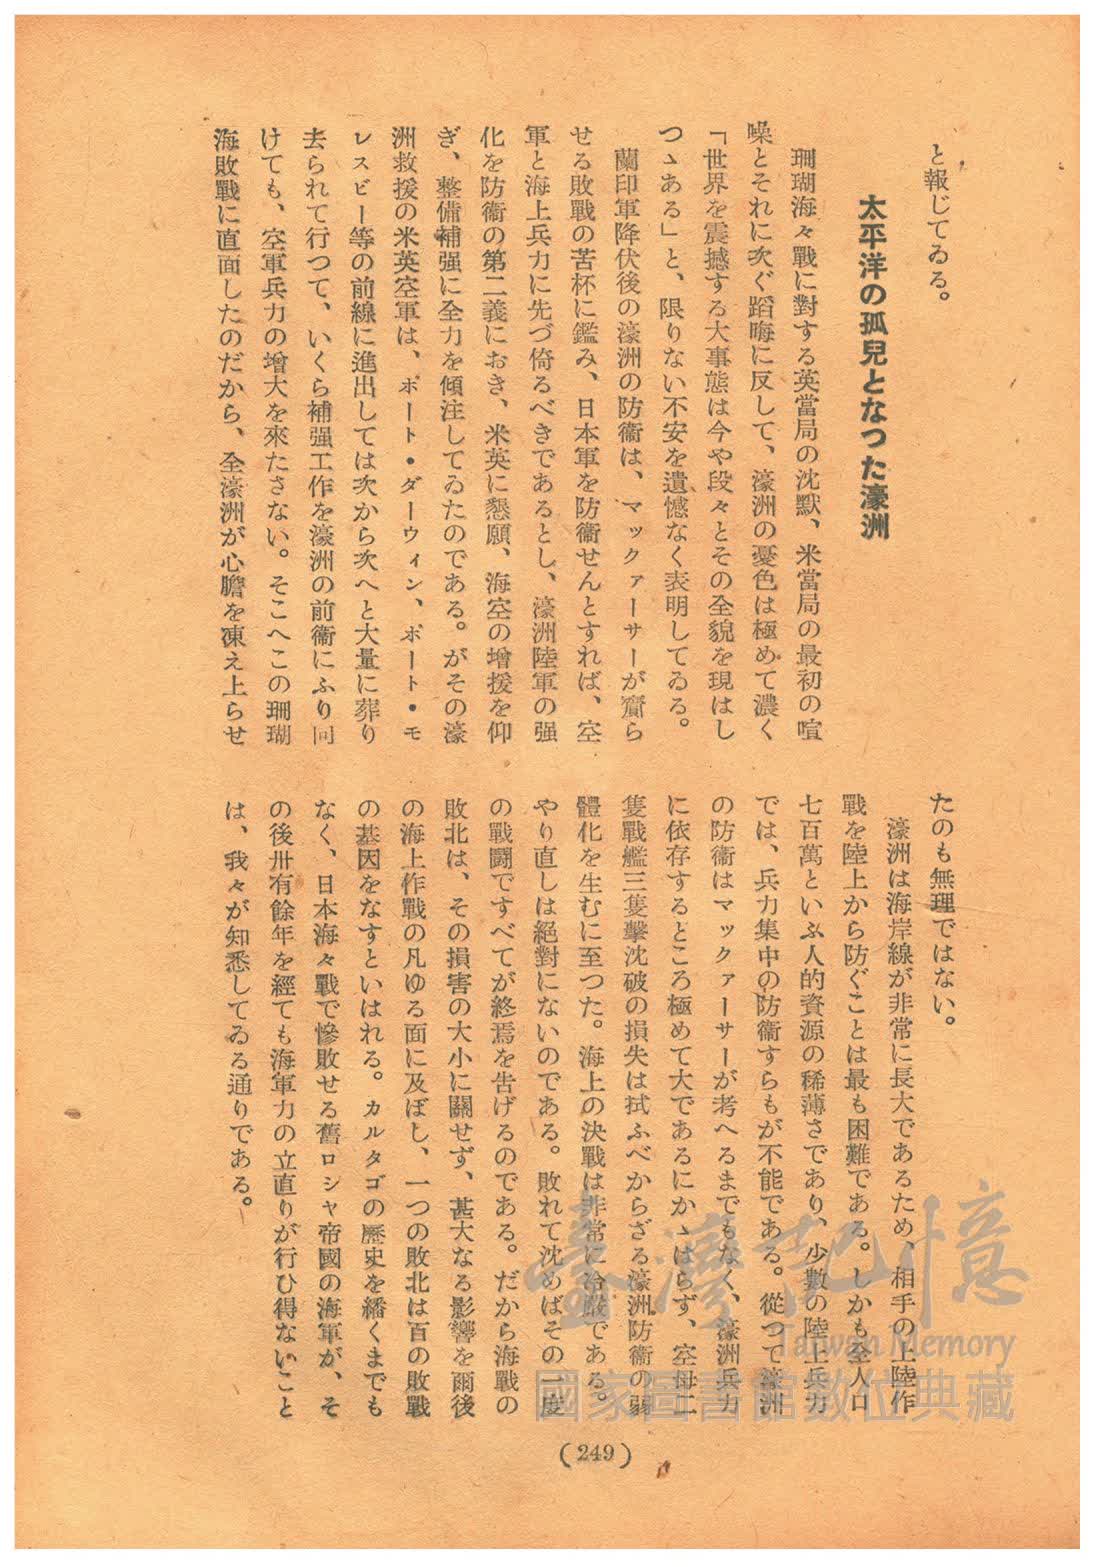 と報じてゐる。
太平洋の孤兒となつた濠洲
珊瑚海々戰に對する英當局の沈默、米當局の最初の喧
噪とそれに次ぐ蹈晦に反して、濠洲の憂色は極めて濃く
「世界を震撼する大事態は今や段々とその全貌を現はし
つゝある」と、限りない不安を遺憾なく表明してゐる。
蘭印軍降伏後の濠洲の防衞は、マックァーサーが齎ら
せる敗戰の苦杯に鑑み、日本軍を防衞せんとすれば、空
軍と海上兵力に先づ倚るべきであるとし、濠洲陸軍の强
化を防衞の第二義におき、米英に懇願、海空の增援を仰
ぎ、整備補强に全力を傾注してゐたのである。がその濠
洲救援の米英空軍は、ポート・ダーウィン、ポート・モ
レスビー等の前線に進出しては次から次へと大量に葬り
去られて行つて、いくら補强工作を濠洲の前衞にふり向
けても、空軍兵力の增大を來たさない。そこへこの珊瑚
海敗戰に直面したのだから、全濠洲が心膽を凍え上らせ
たのも無理ではない。
濠洲は海岸線が非常に長大であるため、相手の上陸作
戰を陸上から防ぐことは最も困難である。しかも全人口
七百萬といふ人的資源の稀薄さであり、少數の陸上兵力
では、兵力集中の防衞すらもが不能である。從つて濠洲
の防衞はマックァーサーが考へるまでもなく、濠洲兵力
に依存するところ極めて大であるにかゝはらず、空母二
隻戰艦三隻擊沈破の損失は拭ふべからざる濠洲防衞の弱
體化を生むに至つた。海上の決戰は非常に冷嚴である。
やり直しは絕對にないのである。敗れて沈めばその一度
の戰鬪ですべてが終焉を告げるのである。だから海戰の
敗北は、その損害の大小に關せず、甚大なる影響を爾後
の海上作戰の凡ゆる面に及ぼし、一つの敗北は百の敗戰
の基因をなすといはれる。カルタゴの歷史を繙くまでも
なく、日本海々戰で慘敗せる舊ロシャ帝國の海軍が、そ
の後卅有餘年を經ても海軍力の立直りが行ひ得ないこと
は、我々が知悉してゐる通りである。
(249)
臺灣記憶
Taiwan Memory
國家圖書館數位典藏